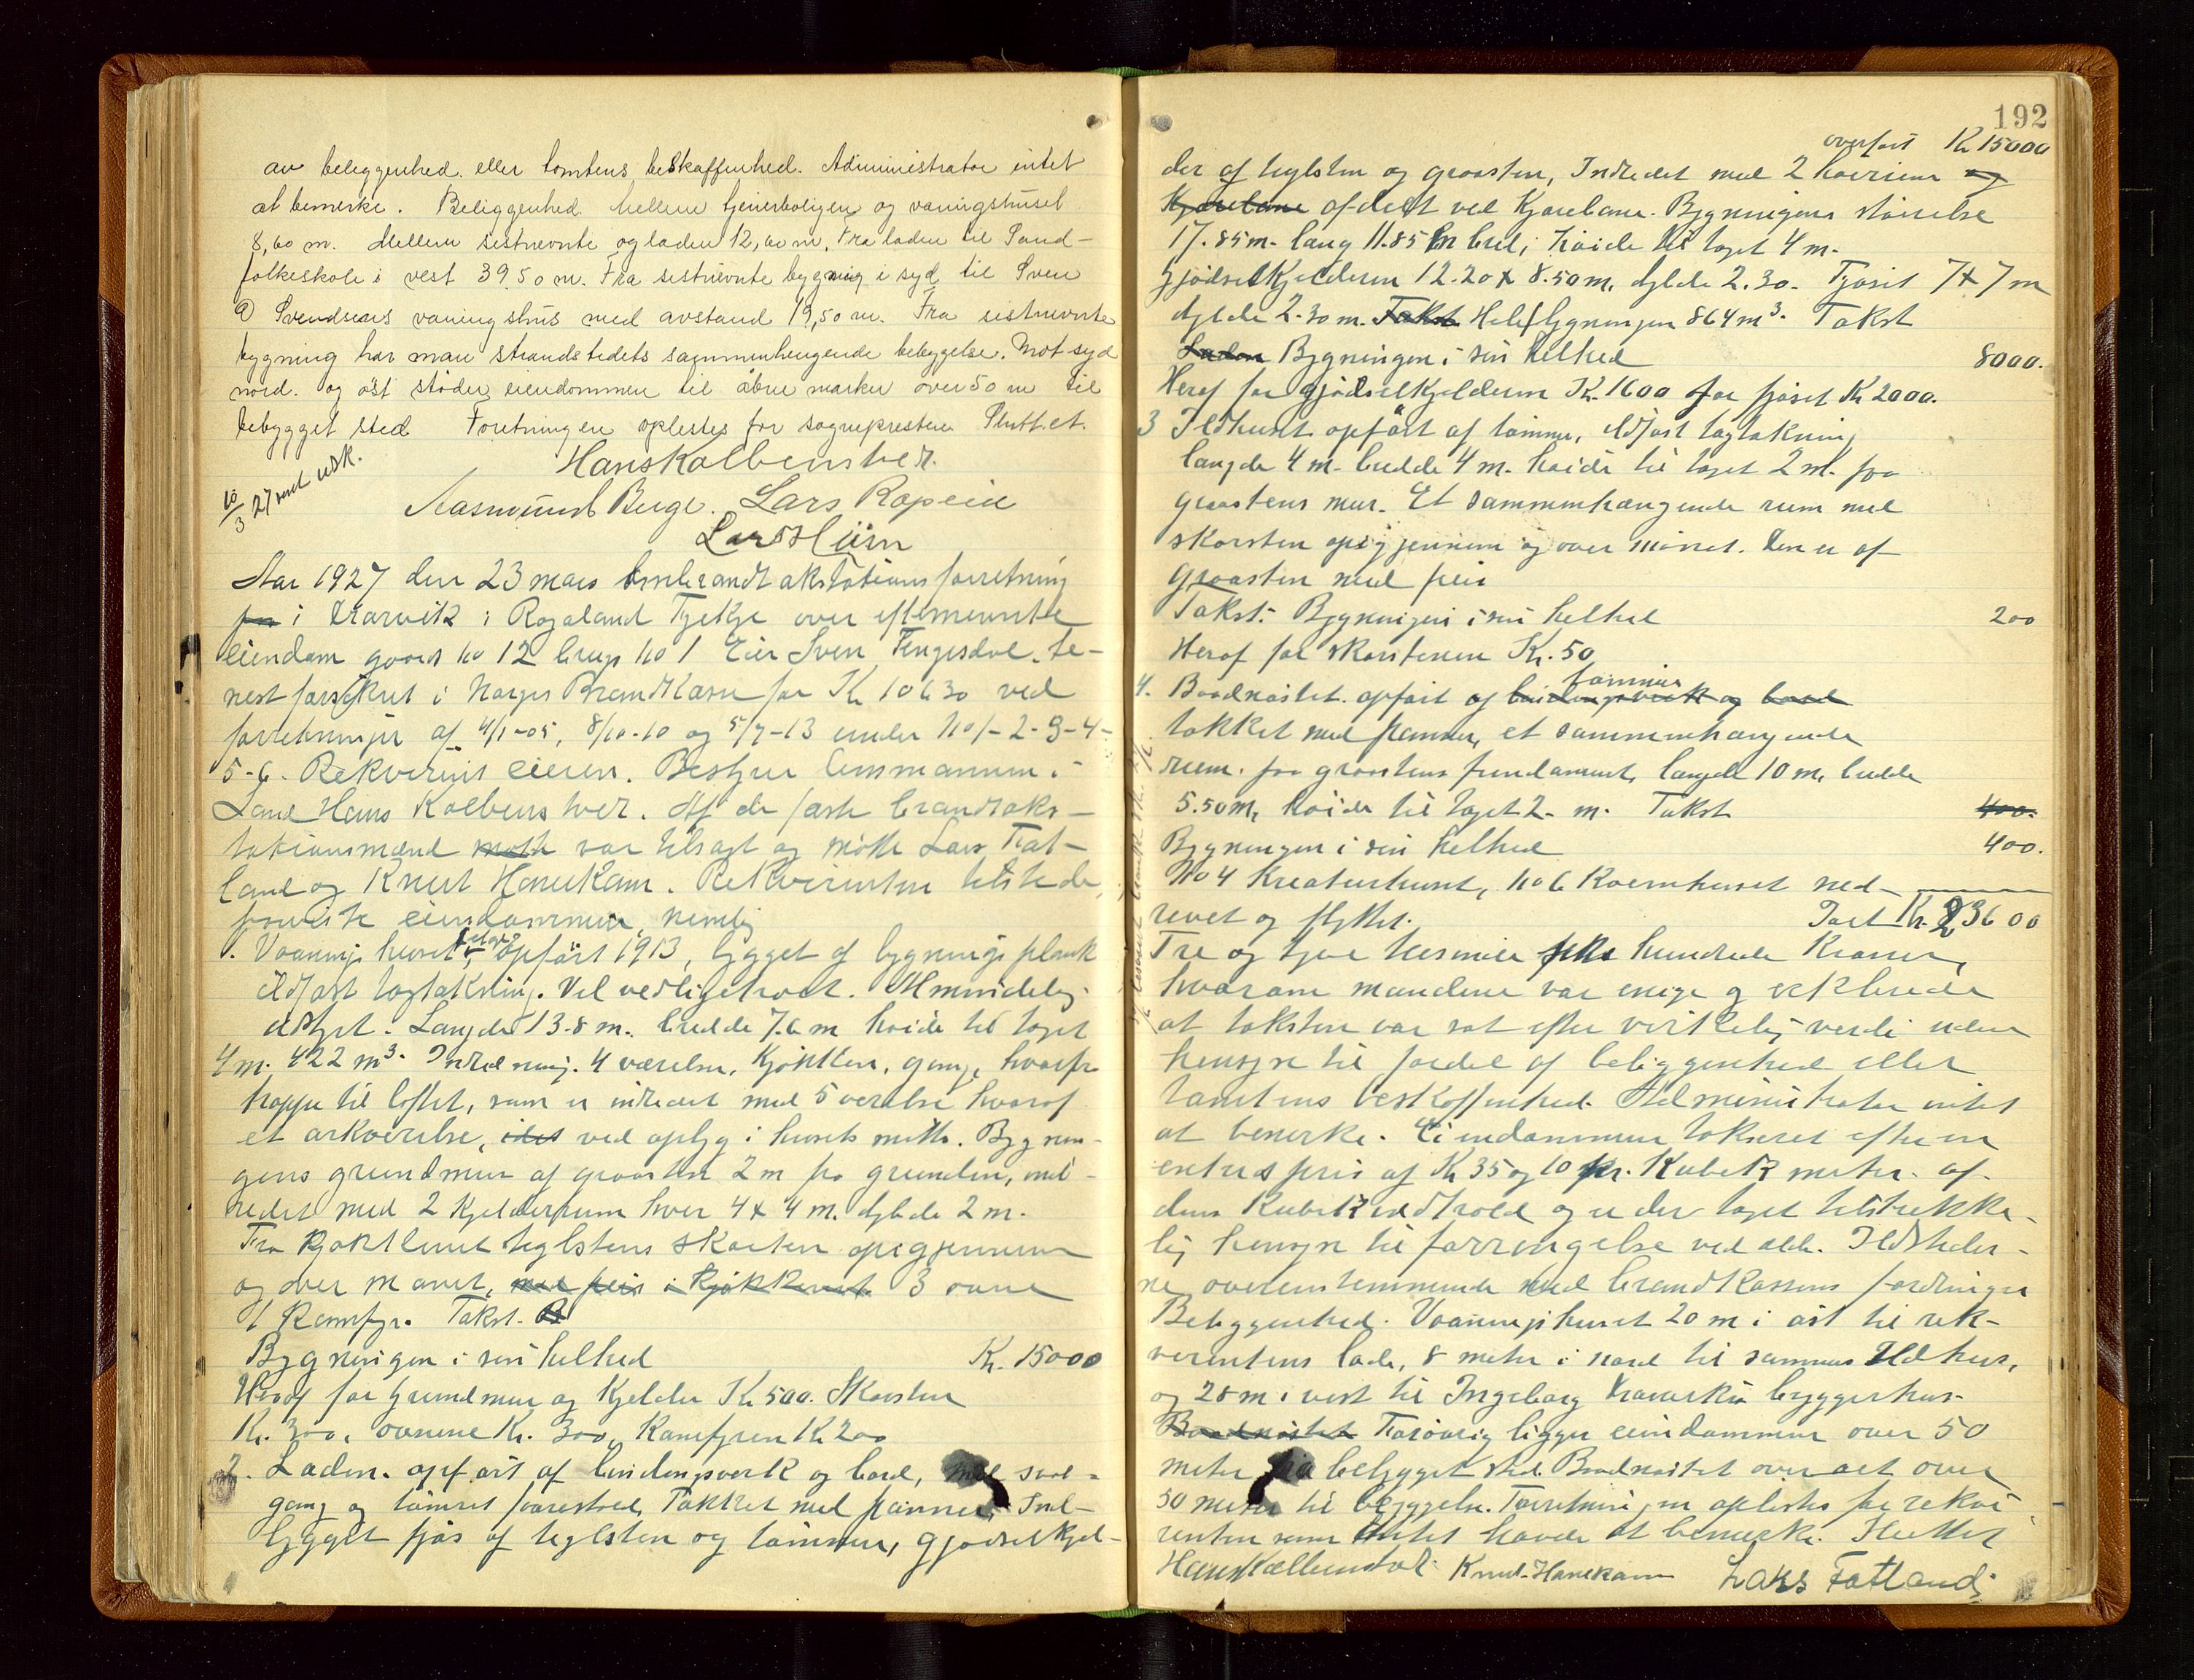 av beleggenhed. eller tomtens beskaffenhed. Administrator intet
at bemerke. Beliggenhed mellem tjenerboligen og vaningshuset
8,60 m. Mellem sistnevnte og laden 12,60 m, Fra laden til Sand-
folkeskole i vest 39.50 m. Fra sistnevnte bygning i syd til Sven
Svendsens vaningshus med avstand 19,50 m. Fra sistnevnte
bygning har man strandstedets sammenhengende bebyggelse. Mot syd
nord. og øst støder eiendommen til åbne marker over 50 m til
bebygget sted Foretningen oplestes for sognepresten Sluttet.
10/3 27 sent utsk.
Hans Kolbenstvedt.
Aasmund Berge. Lars Rapeid
Lars Hiim
Aar 1927 den 23 mars branntakstationsforretning
i Kvarvik i Rogaland Fylke over eftenevnte
eiendom gaards no 12 brugs no 1 Eier Sven Tengesdal. te-
nest forsikret i Norges Brandkasse for Kr 10630 ved
forretninger af 4/1-05, 8/10-10 og 5/7-13 under no 1-2-3-4-
5-6. Rekvirent eieren. Bestyrer lensmannen i
Sand Hans Kolbenstvedt. Af de faste brandtaks-
tationsmænd møtte var tilsagt og møtte Lars Fat-
land og Knut Hanekam. Rekvirenten tilstede,
paaviste eiendommen, nemlig
1. Vaaningshuset, opført 1913, bygget af bygningsplank
ildfast tagtækning. Vel vedligeholdt. Almindelig
utstyr. Længde 13.8 m. bredde 7.6 m høide til taget
4 m. 422 m3. Indredning. 4 værelser, Kjøkken, gang, hvorfra
trappe til loftet, som er indredet med 5 værelser hvoraf
et arkværelse, idet ved opbyg i husets midte. Bygnin-
gens grundmur af graasten 2 m fra grunden, ind-
redet med 2 Kjelderrum hver 4 x 4 m. dybde 2 m.
Fra Kjøkkenet teglstens skorsten opigjennem
og over mønet, med peis i Kjøkkenet 3 ovne
1 Komfyr. Takst.
Bygningen i sin helhed Kr. 15000
Heraf for grundmur og Kjelder Kr 500. Skorsten
Kr. 300, ovnene Kr. 300, Komfyren Kr 200
2. Laden. opført af bindingsverk og bord, med sval-
gang og tømret faarestved Tækket med panner, Ind-
bygget fjøs af teglsten og tømmer, gjødselkjel-
192
overført Kr 15000
der af teglsten og graasten, Indredet med 2 høirum og
Kjørebane afdelt ved Kjørebane. Bygningens størrelse
17.85 m. lang 11.85 m bred, høide til taget 4 m.
gjødselkjelderen 12.20 x 8.50 m, dybde 2.30. Fjøset 7 x 7 m
dybde 2.30 m. Takst Hele bygningen 864 m3. Takst
Laden Bygningen i sin helhed 8000.
Heraf for gjødselkjelderen Kr. 1600 for fjøset Kr 2000.
3 Ildhuset opført af tømmer, ildfast tagtækning
længde 4 m. bredde 4 m. høide til taget 2 m. paa
graastens mur. Et sammenhængende rum med
skorsten opigjennem og over mønet. Den er af
graasten med peis
Takst. Bygningen i sin helhed 200
Heraf for skorstenen Kr. 50
4. Baadnøstet. opført af tømmer bindingsverk og bord
tækket med panner, et sammenhængende
rum. paa graastens fundament, længde 10 m, bredde
5.50 m, høide til taget 2 m. Takst 400.
Bygningen i sin helhed 400.
No 4 Kreaturhuset, no 6 Kvernhuset ned-
revet og flyttet. Tilsammen Kr. 23600
Tre og tyve tusinde seks hundrede Kroner,
hvorom mændene var enige og erklærede
at taksten var sat efter virkelig verdi uden
hensyn til fordel af beliggenhed eller
tomtens beskaffenhed. Administrator intet
at bemerke. Eiendommen takseret efter en
enheds pris af Kr 35 og 10 pr. Kubik meter. af
dens Kubikindhold og er der taget tilstrekke-
lig hensyn til forringelse ved ælde. Ildsteder-
ne overensstemmende med brandkassens fordringer
Beliggenhed. Vaaningshuset 20 m i øst til rek-
virentens lade, 8 meter i nord til sammes Ildhus,
og 28 m i vest til Ingeborg Kvarviks byggerhus.
Baadnøstet Forøvrig ligger eiendommen over 50
meter fra bebygget sted. Baadnøstet over alt over
50 meter til bebyggelse. Forretningen oplestes for rekvi-
renten som intet havde at bemerke. Sluttet
Hans Kolbenstvedt Knut Hanekam Lars Fatland